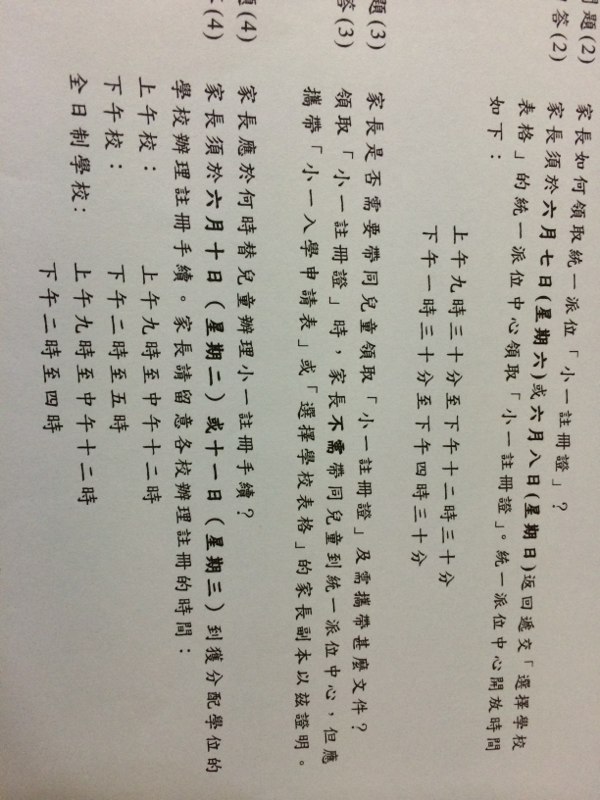 問題(2) 家長如何領取統一派位「小一註冊證」?
答(2) 家長須於六月七日(星期六)或六月八日(星期日)返回遞交「選擇學校
表格」的統一派位中心領取「小一註冊證」。統一派位中心開放時間
如下:
上午九時三十分至下午十二時三十分
下午一時三十分至下午四時三十分
題(3) 家長是否需要帶同兒童領取「小一註冊證」及需攜帶甚麼文件?
答(3) 領取「小一註冊證」時,家長不需帶同兒童到統一派位中心,但應
攜帶「小一入學申請表」或「選擇學校表格」的家長副本以茲證明。
題(4) 家長應於何時替兒童辦理小一註冊手續?
(4) 家長須於六月十日(星期二)或十一日(星期三)到獲分配學位的
學校辦理註冊手續。家長請留意各校辦理註冊的時間:
上午校: 上午九時至中午十二時
下午校: 下午二時至五時
全日制學校: 上午九時至中午十二時
下午二時至四時